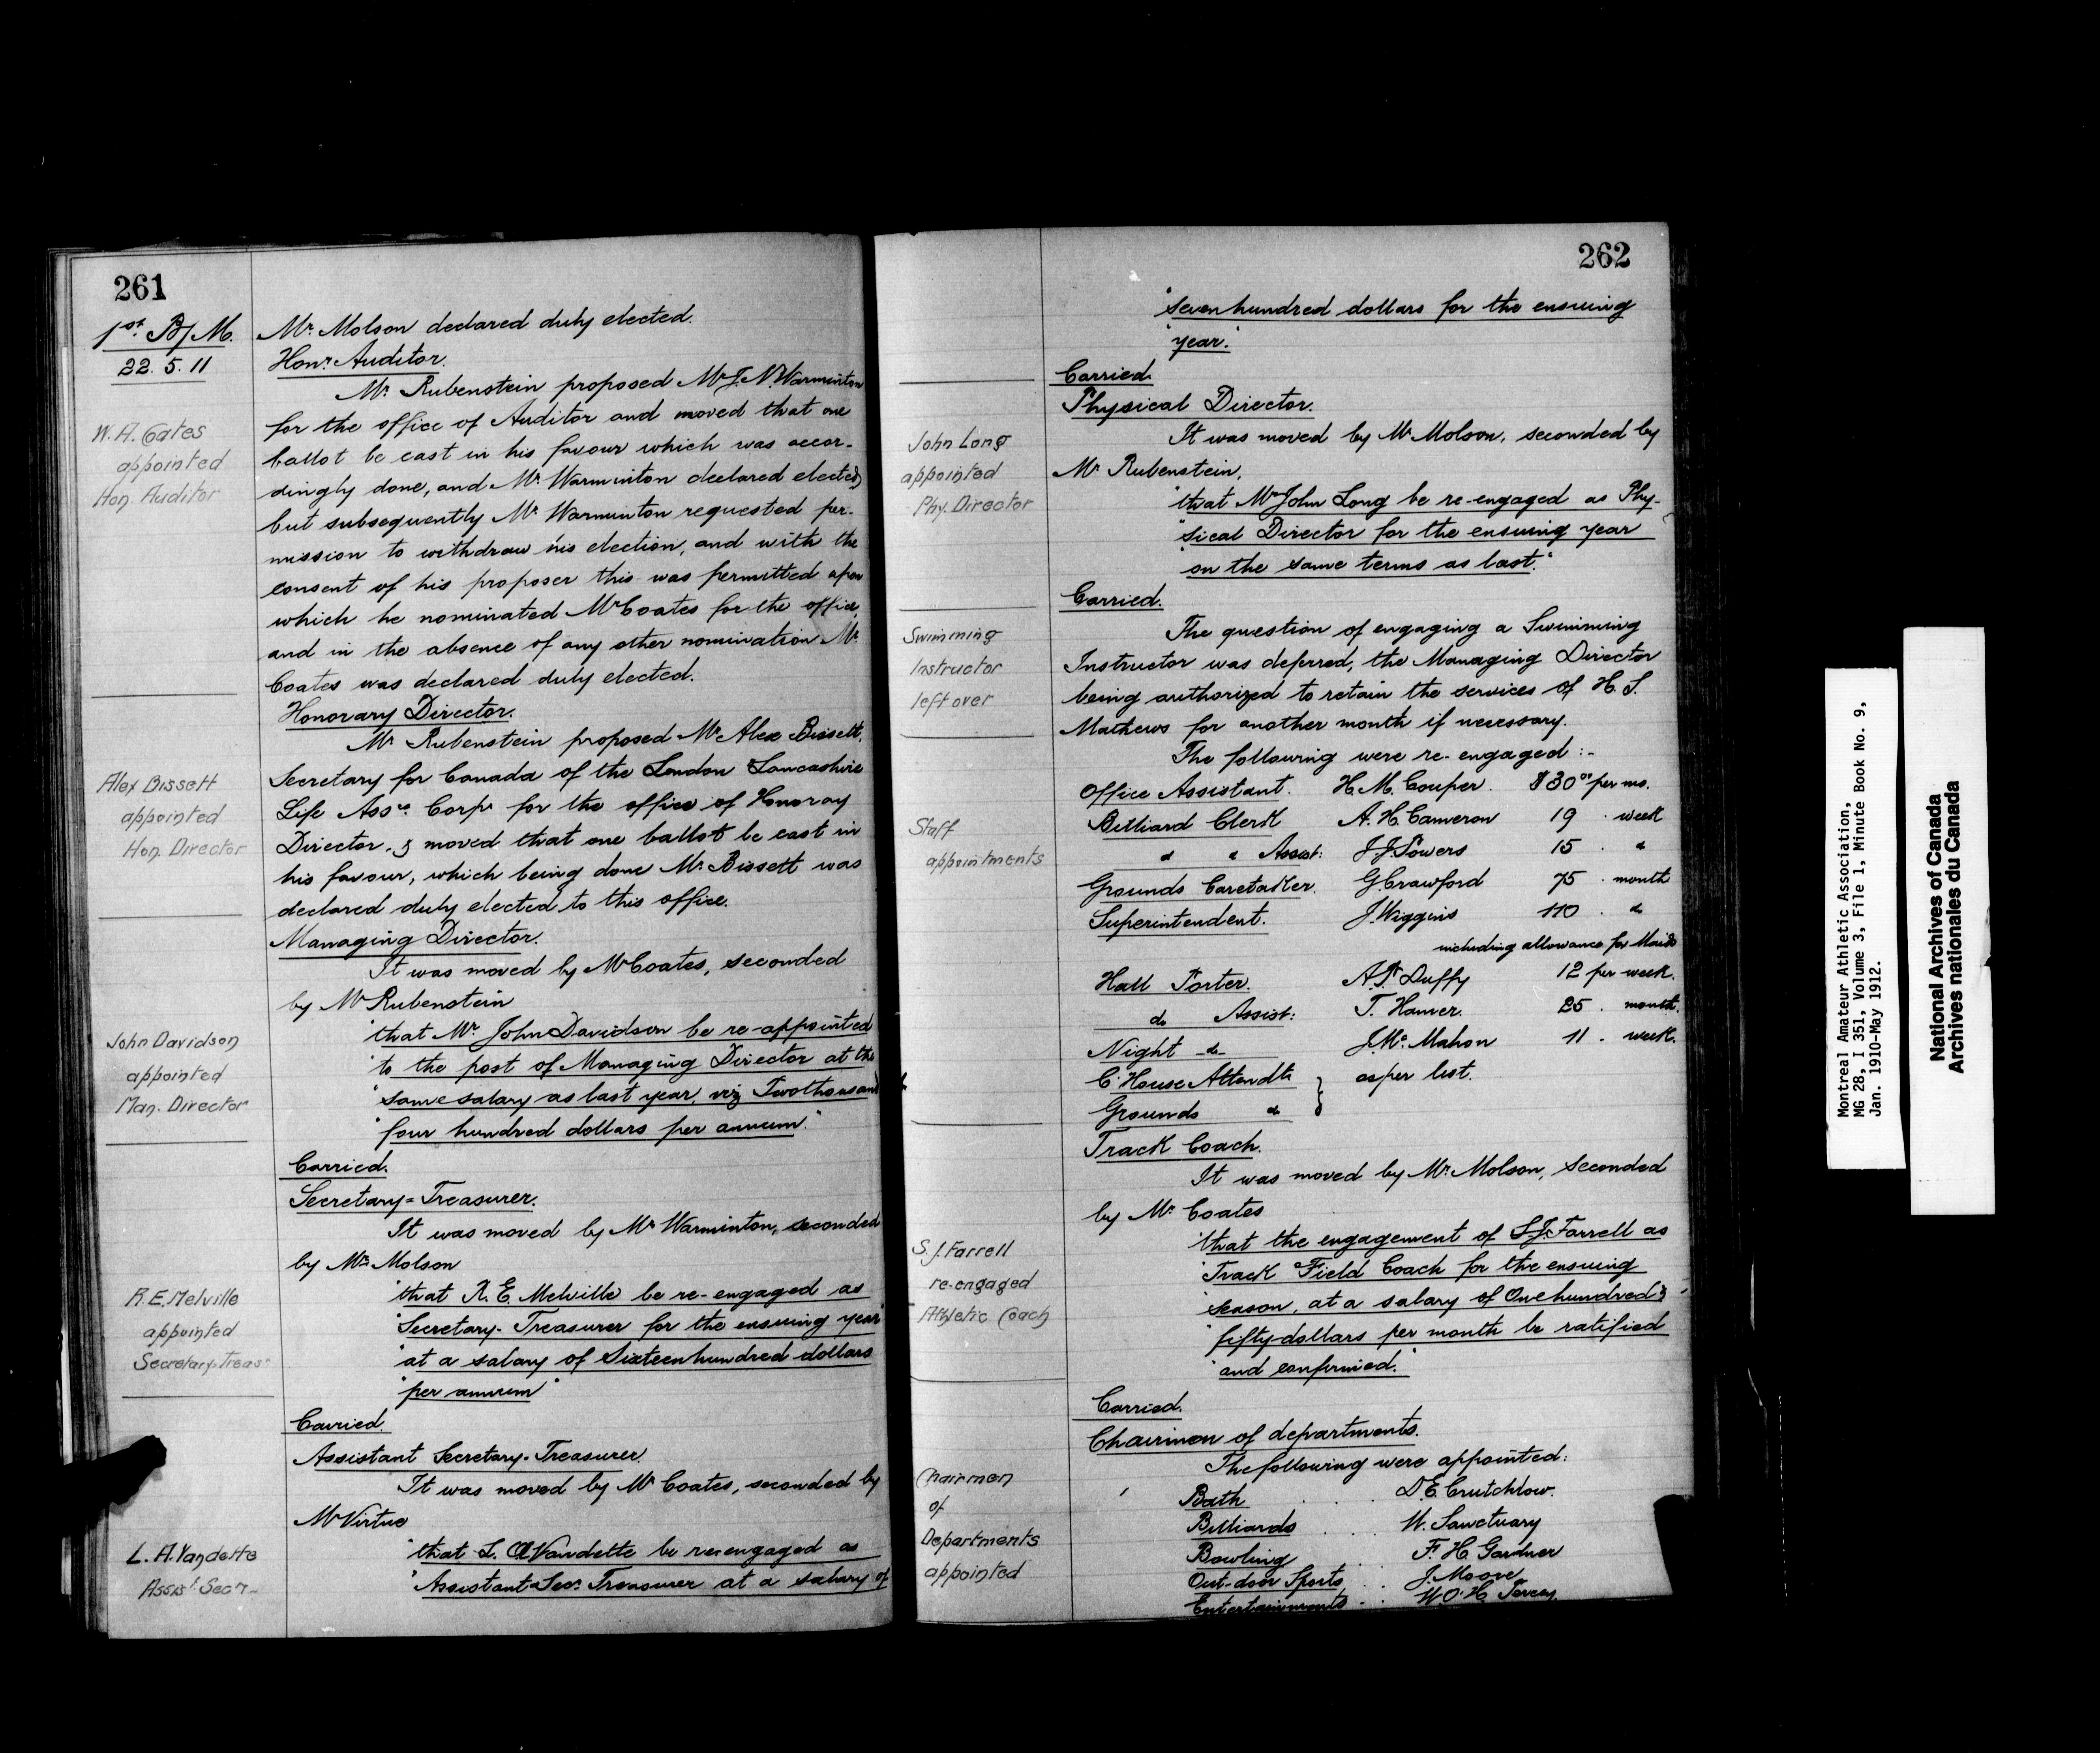 261
1st. B/M.
22. 5. 11
Mr. Molson declared duly elected.
Honr. Auditor.
Mr. Rubenstein proposed Mr J. N. Warminton
for the office of Auditor and moved that one
ballot be cast in his favour which was accor-
dingly done, and Mr. Warminton declared elected
but subsequently Mr. Warminton requested per-
mission to withdraw his election, and with the
consent of his proposer this was permitted upon
which he nominated Mr Coates for the office,
and in the absence of any other nomination Mr.
Coates was declared duly elected.
W. A. Coates
appointed
Hon. Auditor
Honorary Director.
Mr Rubenstein proposed Mr Alex Bissett,
Secretary for Canada of the London Lancashire
Life Assce. Corpn. for the office of Honoray
Director, & moved that one ballot be cast in
his favour, which being done Mr. Bissett was
declared duly elected to this office.
Alex Bissett
appointed
Hon. Director
Managing Director.
It was moved by Mr Coates, seconded
by Mr Rubenstein
"that Mr. John Davidson be re-appointed
"to the post of Managing Director at the
"same salary as last year, viz Two thousand
"four hundred dollars per annum."
Carried.
John Davidson
appointed
Man. Director
Secretary=Treasurer.
It was moved by Mr Warminton, seconded
by Mr. Molson
"that R. E. Melville be re-engaged as
"Secretary-Treasurer for the ensuing year
"at a salary of Sixteen hundred dollars
"per annum"
Carried.
R. E. Melville
appointed
Secretary-Treasr
Assistant Secretary-Treasurer.
It was moved by Mr Coates, seconded by
Mr Virtue
"that L. A. Vandette be re-engaged as
"Assistant-Sec. Treasurer at a salary of
L. A. Vandette
Assist. Secr-
262
"seven hundred dollars for the ensuing
"year."
Carried.
Physical Director.
It was moved by Mr Molson, seconded by
Mr Rubenstein,
"that Mr John Long be re-engaged as Phy-
"sical Director for the ensuing year
"on the same terms as last."
Carried.
John Long
appointed
Phy. Director
The question of engaging a Swimming
Instructor was deferred, the Managing Director
being authorized to retain the services of H. S.
Mathews for another month if necessary.
Swimming
Instructor
left over
The following were re-engaged :-
Office Assistant. H. M. Couper. $30 00 per mo.
Billiard Clerk A. H. Cameron 19 . week
" " Assist: J. J. Powers 15 . "
Grounds Caretaker. G. Crawford 75 . month
Superintendent. J. Wiggins 110 . do
including allowance for Maids
Hall Porter. A. P. Duffy 12 per week.
do Assist: T. Hamer. 25 . month.
Night do J. McMahon 11 . week.
C. House Attendts } as per list.
Grounds do
Staff
appointments
Track Coach.
It was moved by Mr. Molson, seconded
by Mr Coates
"that the engagement of S. J. Farrell as
"Track & Field Coach for the ensuing
"season, at a salary of One hundred &
"fifty dollars per month be ratified
"and confirmed."
Carried.
S. J. Farrell
re-engaged
Athletic Coach
Chairmen of departments.
The following were appointed:
Bath . . D. E. Crutchlow.
Billiards . . W. Sanctuary
Bowling . . F. H. Gardner
Out-door Sports . . J. Moore
Entertainments . . W. O. H.
Chairmen
of
Departments
appointed
Montreal Amateur Athletic Association,
MG 28, I 351, Volume 3, File 1, Minute Book No. 9,
Jan. 1910-May 1912.
National Archives of Canada
Archives nationales du Canada